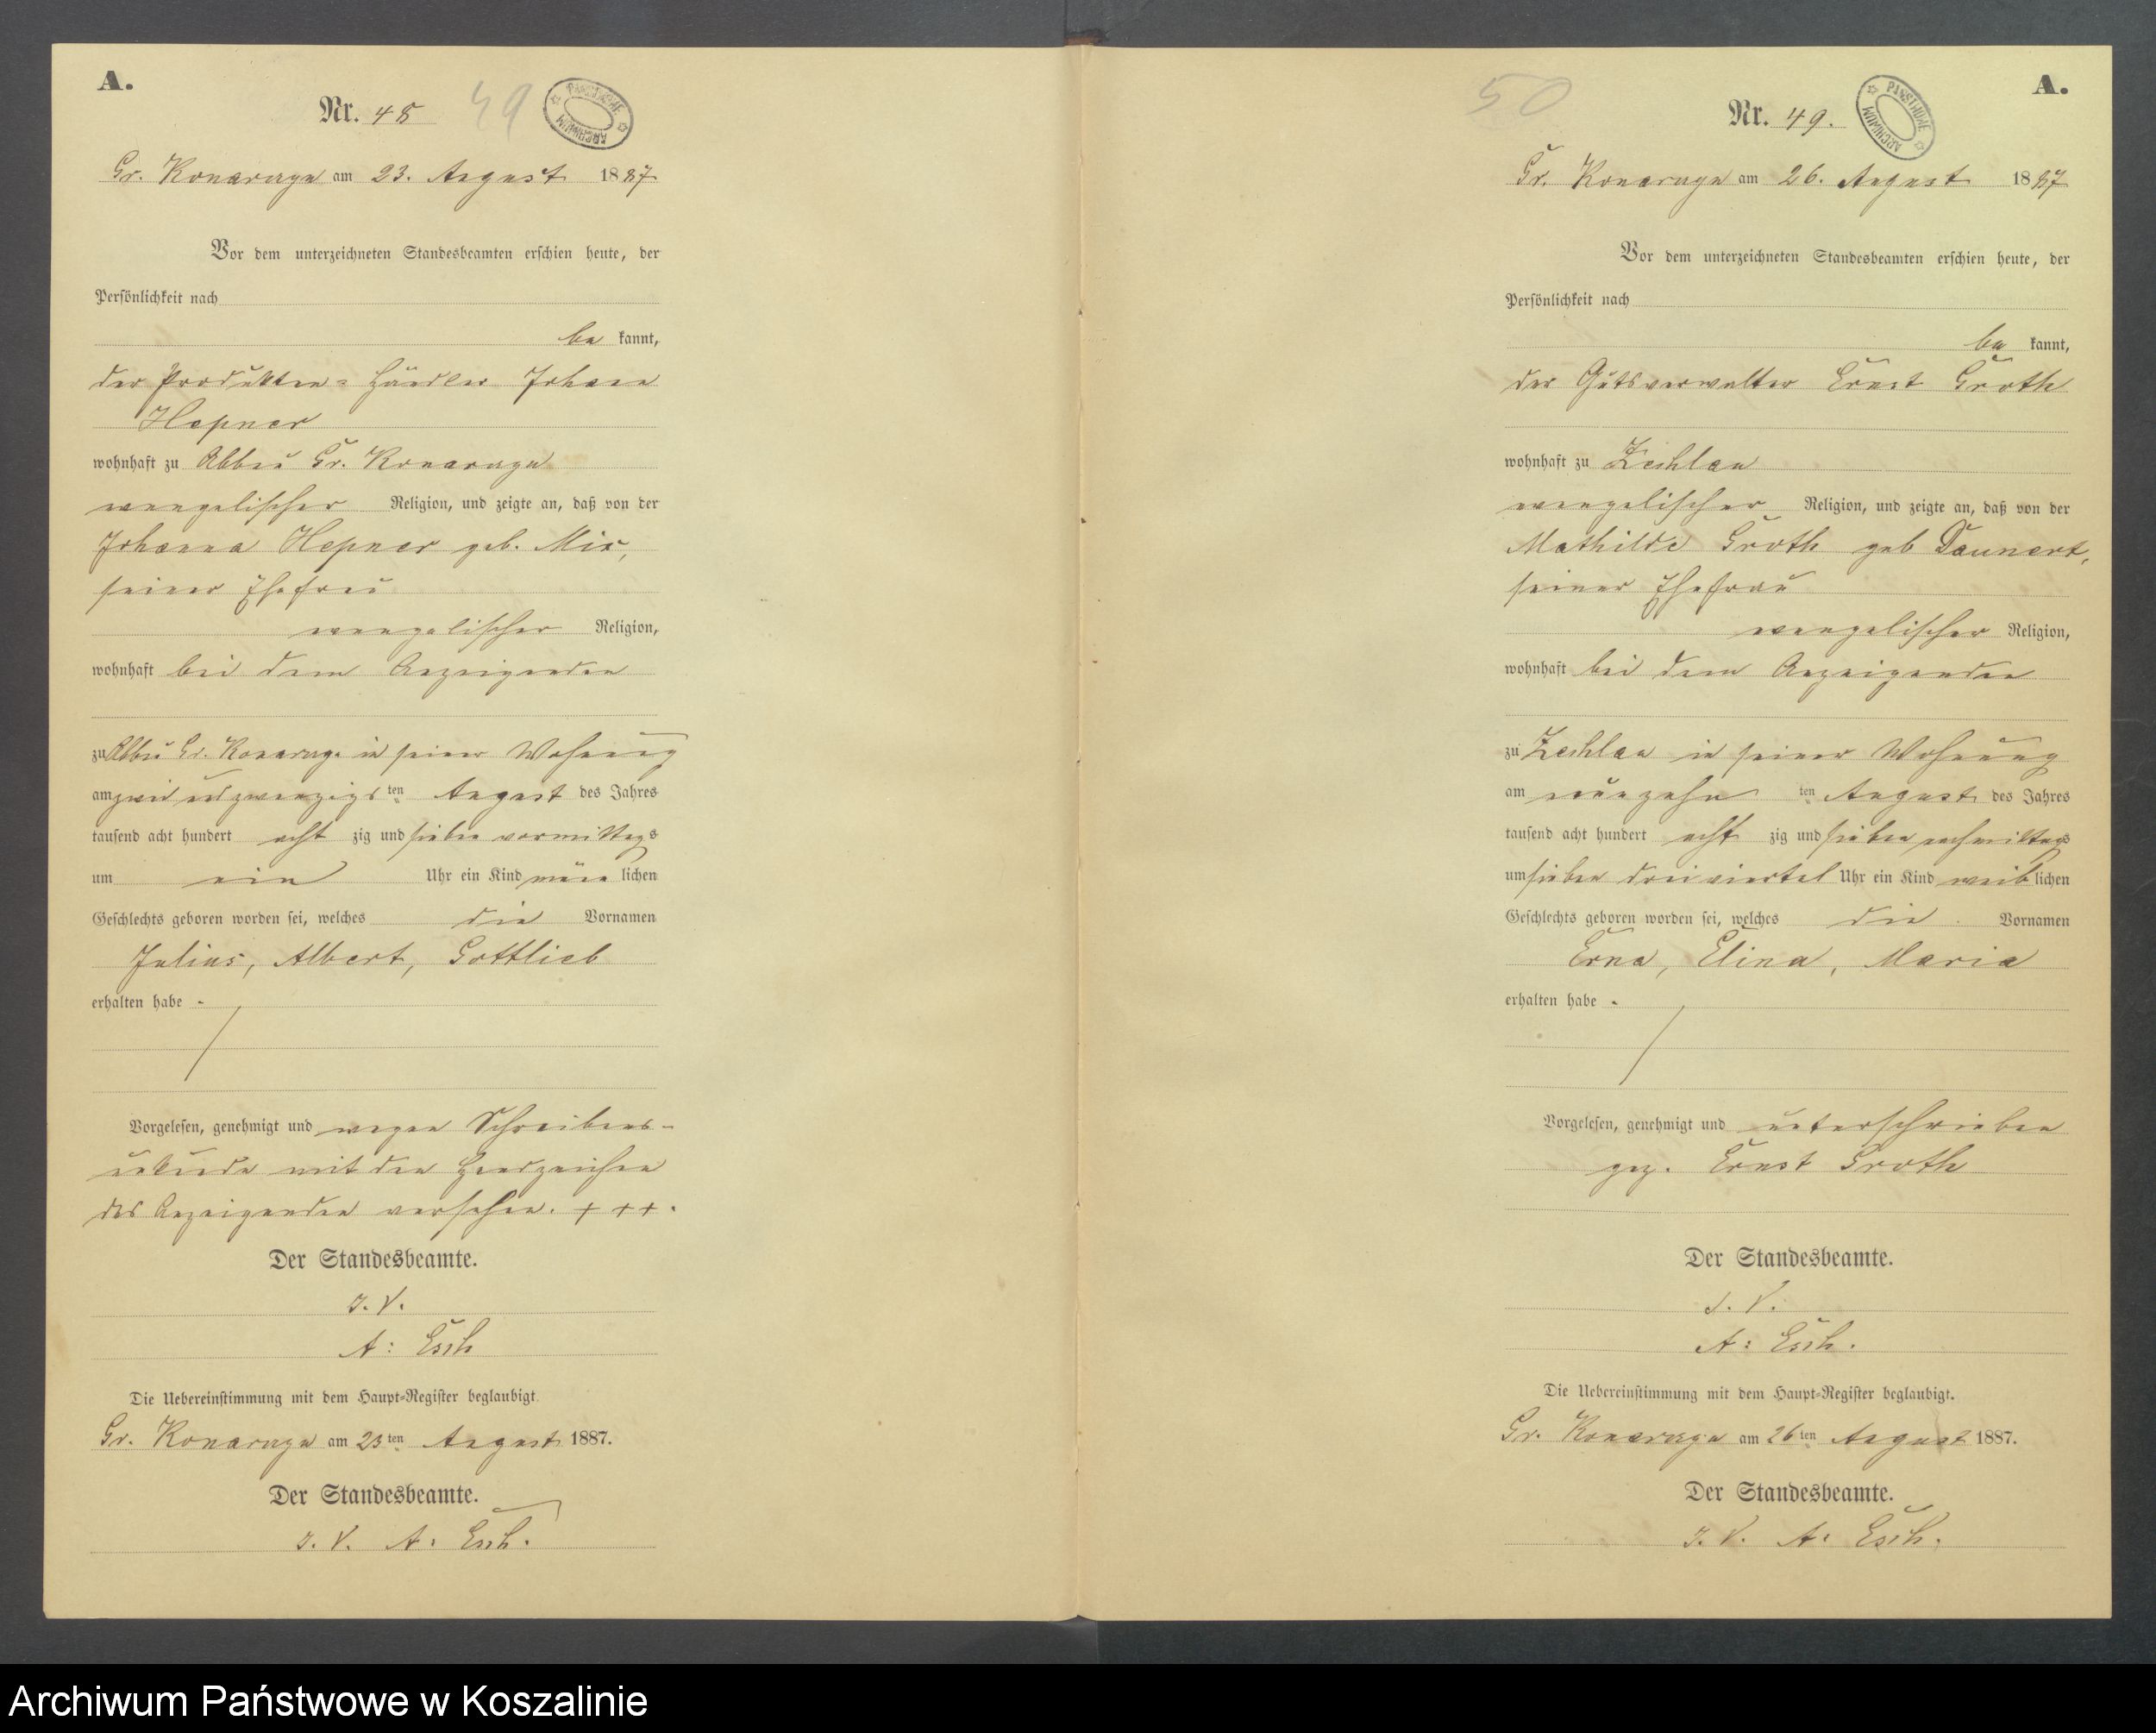 A.
Nr. 48
49
PAŃSTWOWE
ARCHIWUM
Gr. Konarczyn am 23. August 1887
Vor dem unterzeichneten Standesbeamten erschien heute, der
Persönlichkeit nach
be kannt,
der Produkten-Händler Johann
Hepner
wohnhaft zu Abbau Gr. Konarczyn
evangelischer Religion, und zeigte an, daß von der
Johanna Hepner geb. Mix,
seiner Ehefrau
evangelischer Religion,
wohnhaft bei dem Anzeigenden
zu Abbau Gr. Konarczyn in seiner Wohnung
am zwei und zwanzigsten August des Jahres
tausend acht hundert acht zig und sieben vormittags
um ein Uhr ein Kind männ lichen
Geschlechts geboren worden sei, welches die Vornamen
Julius, Albert, Gottlieb
erhalten habe.
Vorgelesen, genehmigt und wegen Schreibens-
unkunde mit den Handzeichen
des Anzeigenden versehen. + + +.
Der Standesbeamte.
I. V.
A: Esch
Die Uebereinstimmung mit dem Haupt-Register beglaubigt.
Gr. Konarczyn am 23ten August 1887.
Der Standesbeamte.
I. V. A: Esch.
A.
50
Nr. 49.
PAŃSTWOWE
ARCHIWUM
Gr. Konarczyn am 26. August 1887
Vor dem unterzeichneten Standesbeamten erschien heute, der
Persönlichkeit nach
be kannt,
der Gutsverwalter Ernst Groth
wohnhaft zu Zechlau
evangelischer Religion, und zeigte an, daß von der
Mathilde Groth geb Daunert,
seiner Ehefrau
evangelischer Religion,
wohnhaft bei dem Anzeigenden
zu Zechlau in seiner Wohnung
am neunzehn ten August des Jahres
tausend acht hundert acht zig und sieben nachmittags
um sieben dreiviertel Uhr ein Kind weib lichen
Geschlechts geboren worden sei, welches die Vornamen
Erna, Elina, Maria
erhalten habe.
Vorgelesen, genehmigt und unterschrieben
gez. Ernst Groth
Der Standesbeamte.
I. V.
A: Esch.
Die Uebereinstimmung mit dem Haupt-Register beglaubigt.
Gr. Konarczyn am 26ten August 1887.
Der Standesbeamte.
I. V. A: Esch.
Archiwum Państwowe w Koszalinie